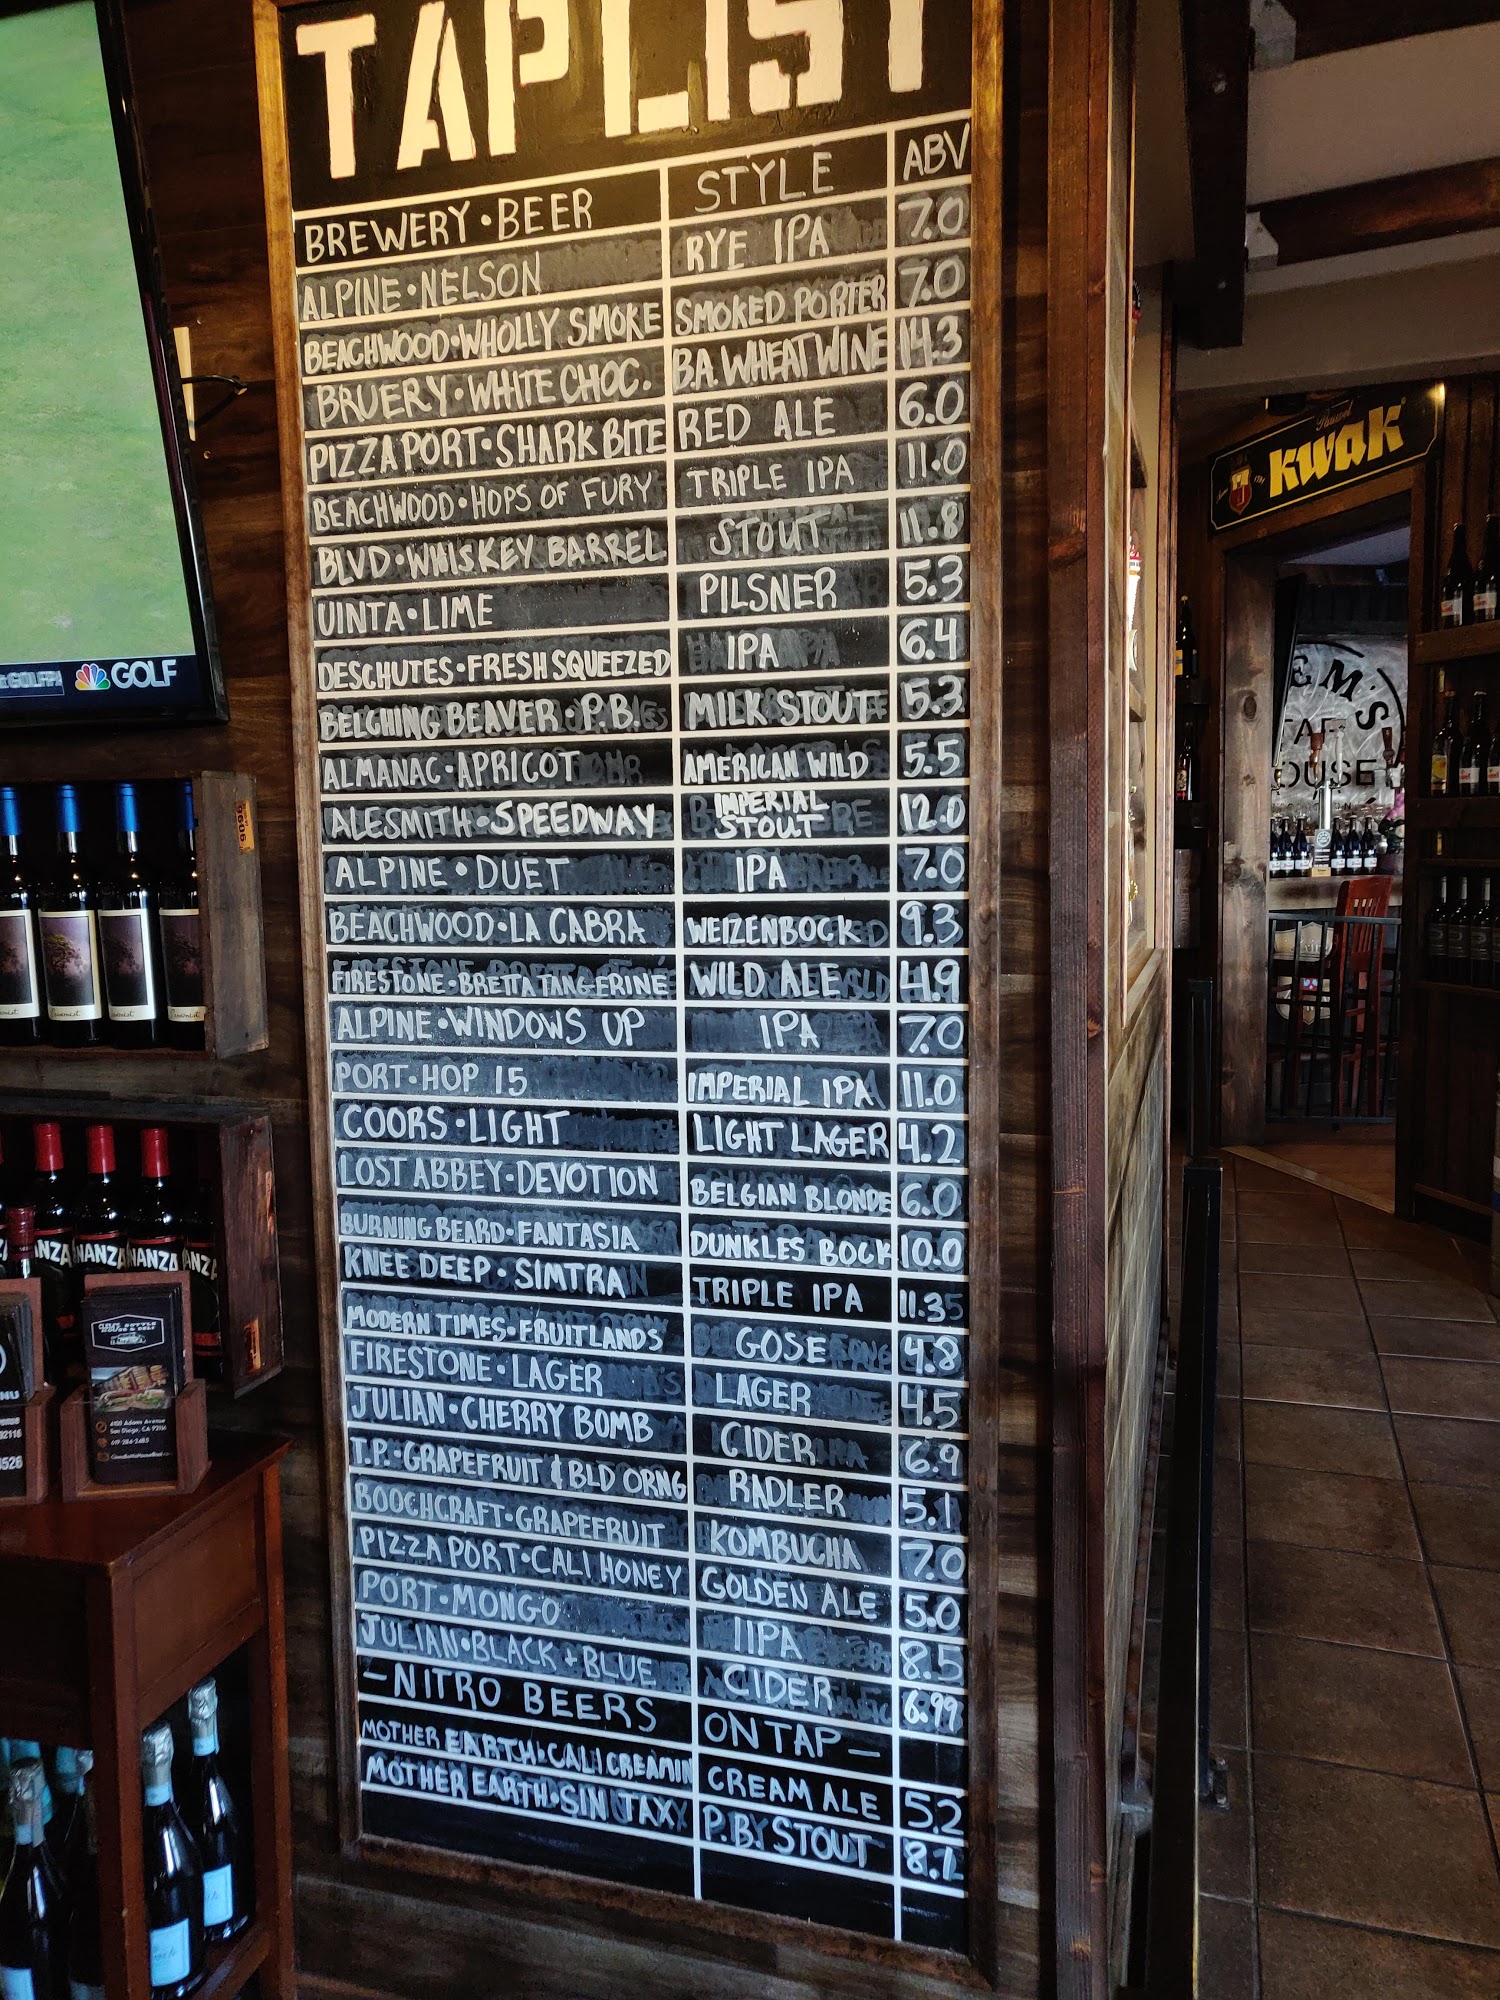 TAP LIST
BREWERY • BEER STYLE ABV
ALPINE • NELSON RYE IPA 7.0
BEACHWOOD • WHOLLY SMOKE SMOKED PORTER 7.0
BRUERY • WHITE CHOC. B.A. WHEAT WINE 14.3
PIZZA PORT • SHARK BITE RED ALE 6.0
BEACHWOOD • HOPS OF FURY TRIPLE IPA 11.0
BLVD • WHISKEY BARREL STOUT 11.8
UINTA • LIME PILSNER 5.3
DESCHUTES • FRESH SQUEEZED IPA 6.4
BELCHING BEAVER • P.B. MILK STOUT 5.3
ALMANAC • APRICOT AMERICAN WILD 5.5
ALESMITH • SPEEDWAY IMPERIAL STOUT 12.0
ALPINE • DUET IPA 7.0
BEACHWOOD • LA CABRA WEIZENBOCK 9.3
FIRESTONE • BRETTA TANGERINE WILD ALE 4.9
ALPINE • WINDOWS UP IPA 7.0
PORT • HOP 15 IMPERIAL IPA 11.0
COORS • LIGHT LIGHT LAGER 4.2
LOST ABBEY • DEVOTION BELGIAN BLONDE 6.0
BURNING BEARD • FANTASIA DUNKLES BOCK 10.0
KNEE DEEP • SIMTRA TRIPLE IPA 11.3
MODERN TIMES • FRUITLANDS GOSE 4.8
FIRESTONE • LAGER LAGER 4.5
JULIAN • CHERRY BOMB CIDER 6.9
T.P. • GRAPEFRUIT & BLD ORNG RADLER 5.1
BOOCHCRAFT • GRAPEFRUIT KOMBUCHA 7.0
PIZZA PORT • CALI HONEY GOLDEN ALE 5.0
PORT • MONGO IIPA 8.5
JULIAN • BLACK + BLUE CIDER 6.99
— NITRO BEERS ON TAP —
MOTHER EARTH • CALI CREAMIN CREAM ALE 5.2
MOTHER EARTH • SIN TAX P.B. STOUT 8.1
GOLF
KWAK
EM'S
TAP
OUSE
NANZA
4100 Adams Avenue
San Diego, CA 92116
619-284-2485